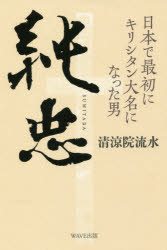 日本で最初に
キリシタン大名に
なった男
純忠
SUMITADA
清涼院流水
WAVE出版